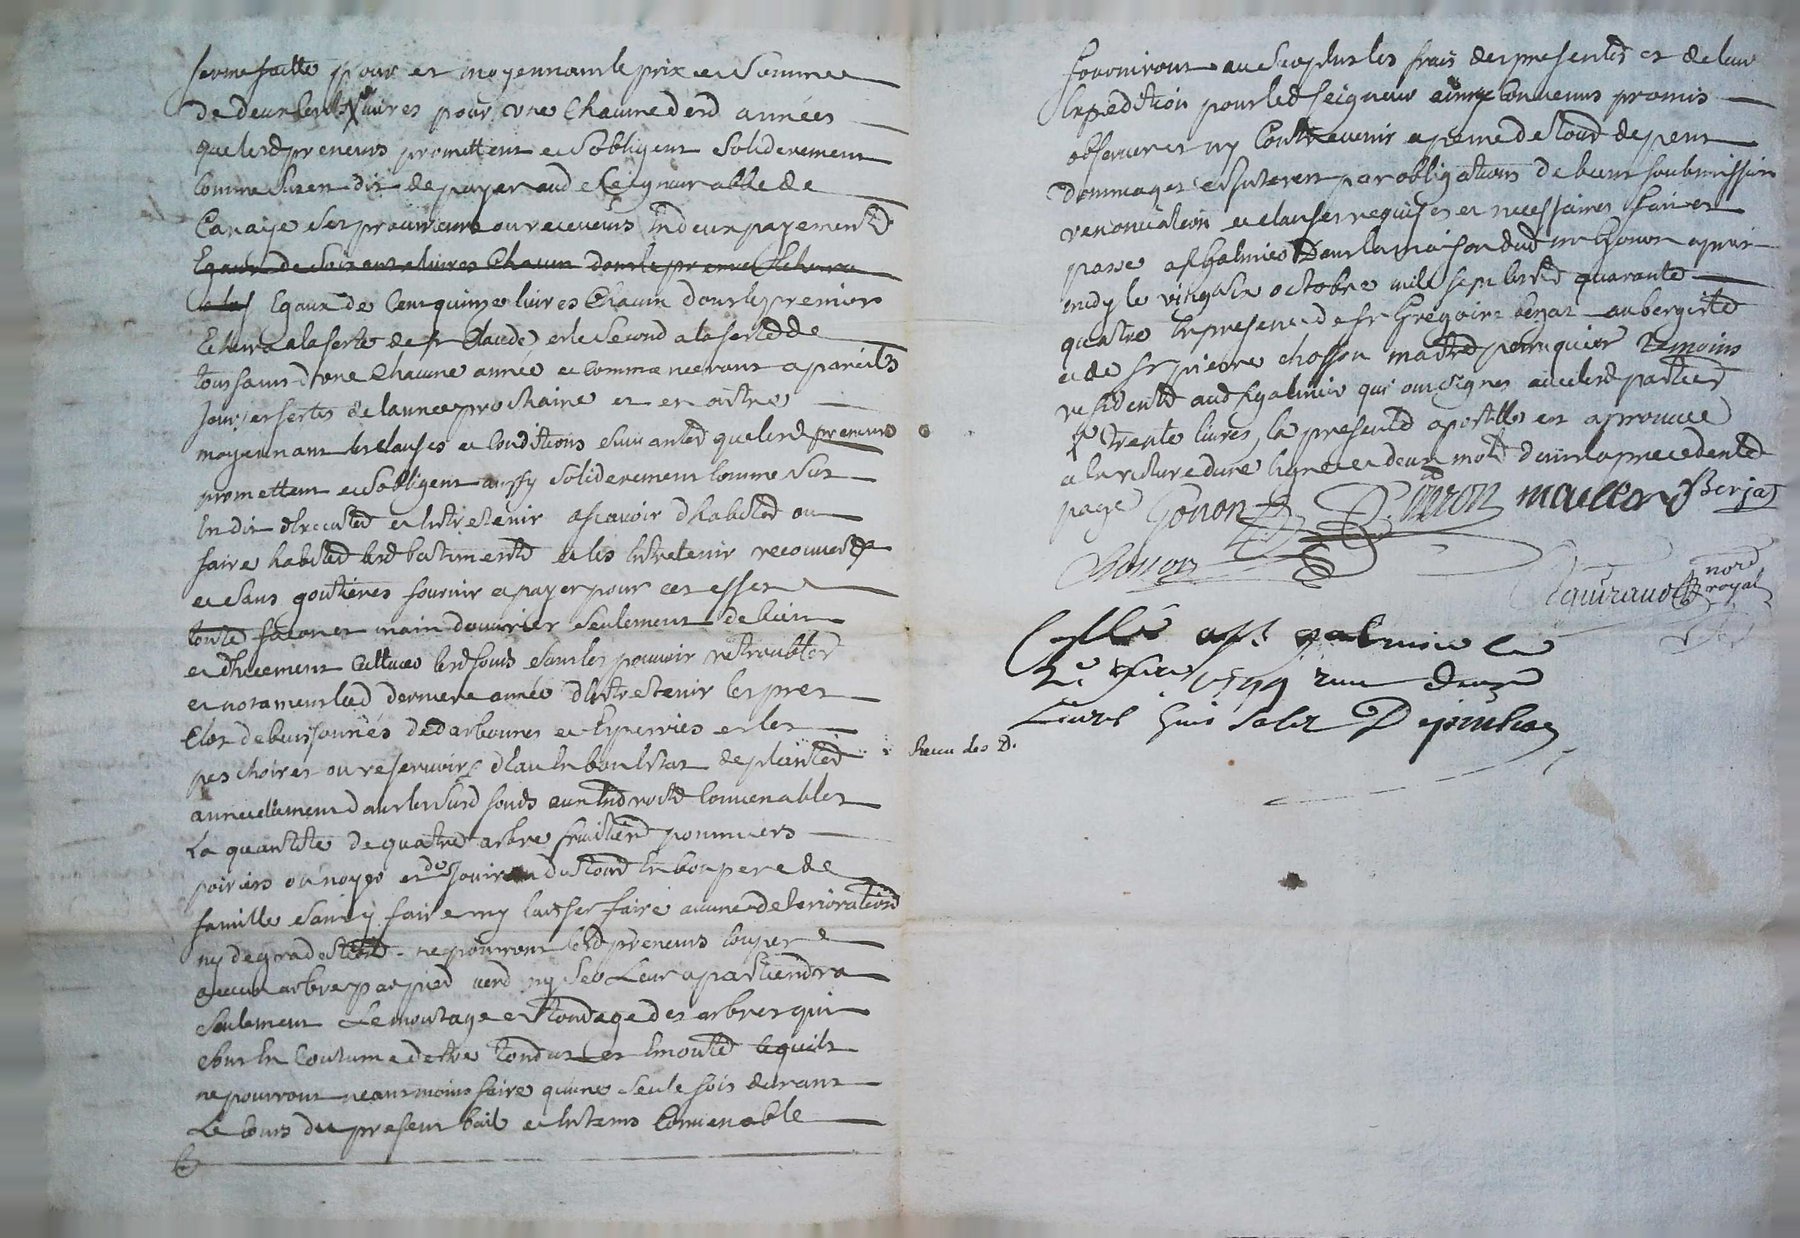 ferme faitte pour et moyennant le prix et Somme
de deux cent livres pour une Chacune desd années
que lesd preneurs promettent et Sobligent Soliderement
comme Sus en dit de payer aud Seigneur abbé de
ses procureurs ou receveurs en deux payements
Egaux de Soixante livres Chacun dont le premier Echerra
Egaux de Cent quinze livres Chacun dont le premier
Echerra a la feste de st Claude et le Second a la feste de
toussaint d'une Chacune année et commenceront a pareils
jours et festes de lannee prochaine et en outre
moyennant les clauses et Conditions suivantes que lesd preneurs
promettent et Sobligent aussy Soliderement comme Sus
En dit et Entretenir ascavoir d'habiter ou
faire habiter lesd batiments et les Entretenir recouverts
et Sans goutieres fournir et payer pour cet effet
toutes facon et main douvrier Seulement de bien
et cultiver lesd fonds Sans les pouvoir
et notament lad derniere année d'Entretenir les prez
Clos de buissonnés de darbounes et et les
peschoires ou reservoirs d'Eau En bon Estat de planter
annuellement dans lesusd fonds aux Endroits Convenables
La quantité de quatre arbre fruitiers pommiers
poiriers ou noyer et de jouir du tout En bon pere de
famille Sans y faire ny laisser faire aucune deteriorations
ny degradations ne pourront lesd preneurs Couper
aucun arbre par pied verd ny Sec Leur apartiendra
Seulement Lemontage et tondage des arbres qui
Sont En Coutume destre tondus et Emonté ce quils
ne pourront neantmoins faire qu'une Seule fois durant
Le Cours du present bail et En tems Convenable
fourniront au Surplus les frais des presentes et de leur
Expedition pour led Seigneur ainsy Convenus promis
observer et ny Contrevenir a peine de tous depens
Dommages et Interest par obligations de biens soubmission
renonciation et clauses requises et necessaires fait et
passé a st Galmier Dans la maison dud mr Gonon apres
midy le vingt six octobre mile sept cents quarante
quatre En presence de sr Gregoire berjat aubergiste
et de sr pierre chosson maitre perruquier Temoins
residents aud st galmier qui ont signes avec lesd parties
X trente livres, la presente apostille est aprouvee
a la rature d'une ligne et deux mots d'aūtre a precedente
page Gonon P. Gonon maillon Berjat
Chosson
nore
royal
Collé a st galmier le
1744 recu douze
Livres huit Sols
Receu des D.